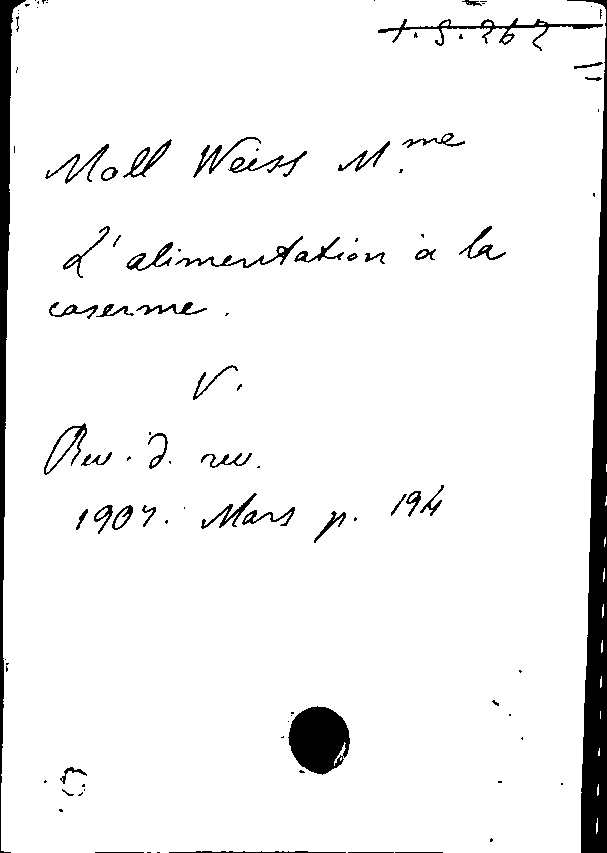 1.S.262
Moll Weiss M.me
L'alimentation à la
caserme.
V.
Rev. d. rev.
1907. Mars p. 194